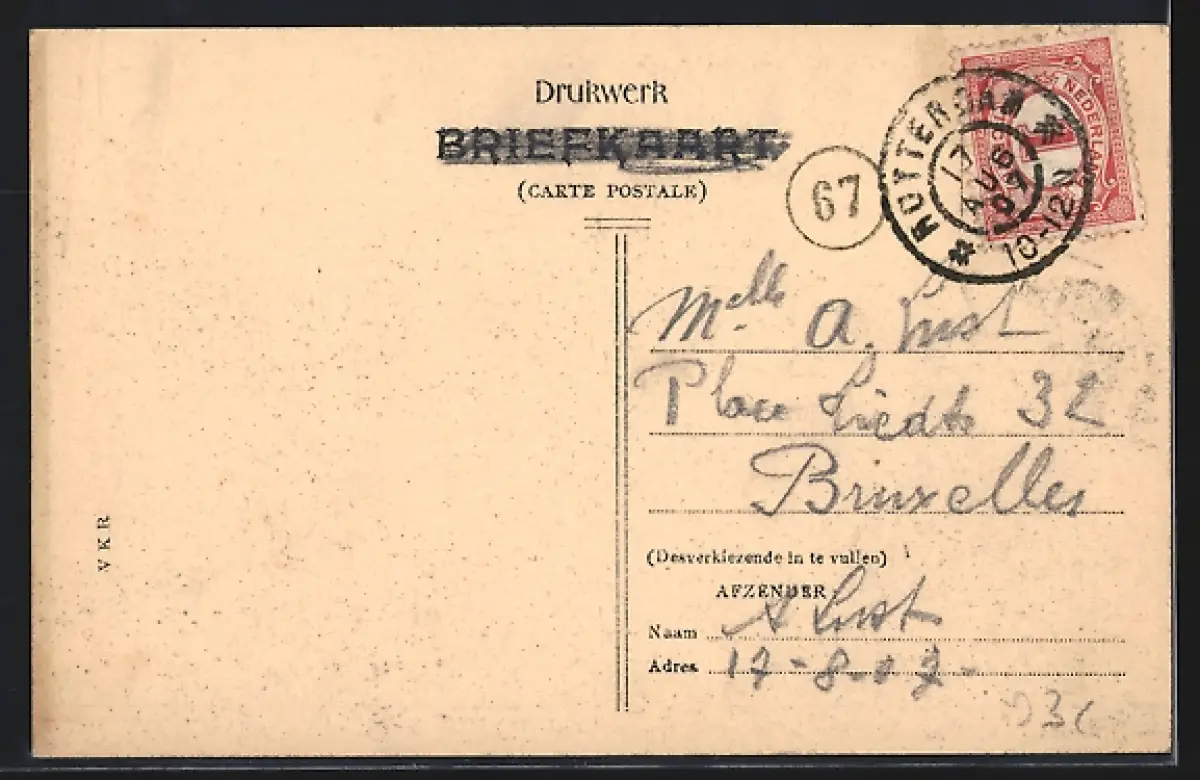 Drukwerk
BRIEFKAART
(CARTE POSTALE)
67
ROTTERDAM
17 AUG 07
10-12 N
NEDERLAND
1
Melle A. Lust
Place Liedts 32
Bruxelles
(Desverkiezende in te vullen)
AFZENDER
Naam A Lust
Adres 17-8-07-
VKR